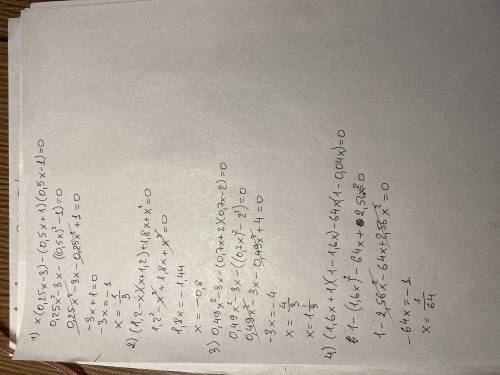 1) x(0,25x-3)-(0,5x+1)(0,5x-1)=0
0,25x²-3x-((0,5x)²-1)=0
0,25x²-3x-0,25x²+1=0
-3x+1=0
-3x=-1
x=1/3
2) (1,2-x)(x+1,2)+1,8x+x²=0
1,2²-x²+1,8x+x²=0
1,8x=-1,44
x=-0,8
3) 0,49x²-3x-(0,7x+2)(0,7x-2)=0
0,49x²-3x-((0,7x)²-2²)=0
0,49x²-3x-0,49x²+4=0
-3x=-4
x=4/3
x=1 1/3
4) (1,6x+1)(1-1,6x)-64x(1-0,04x)=0
1-(1,6x)²-64x+2,56x²=0
1-2,56x²-64x+2,56x²=0
-64x=-1
x=1/64